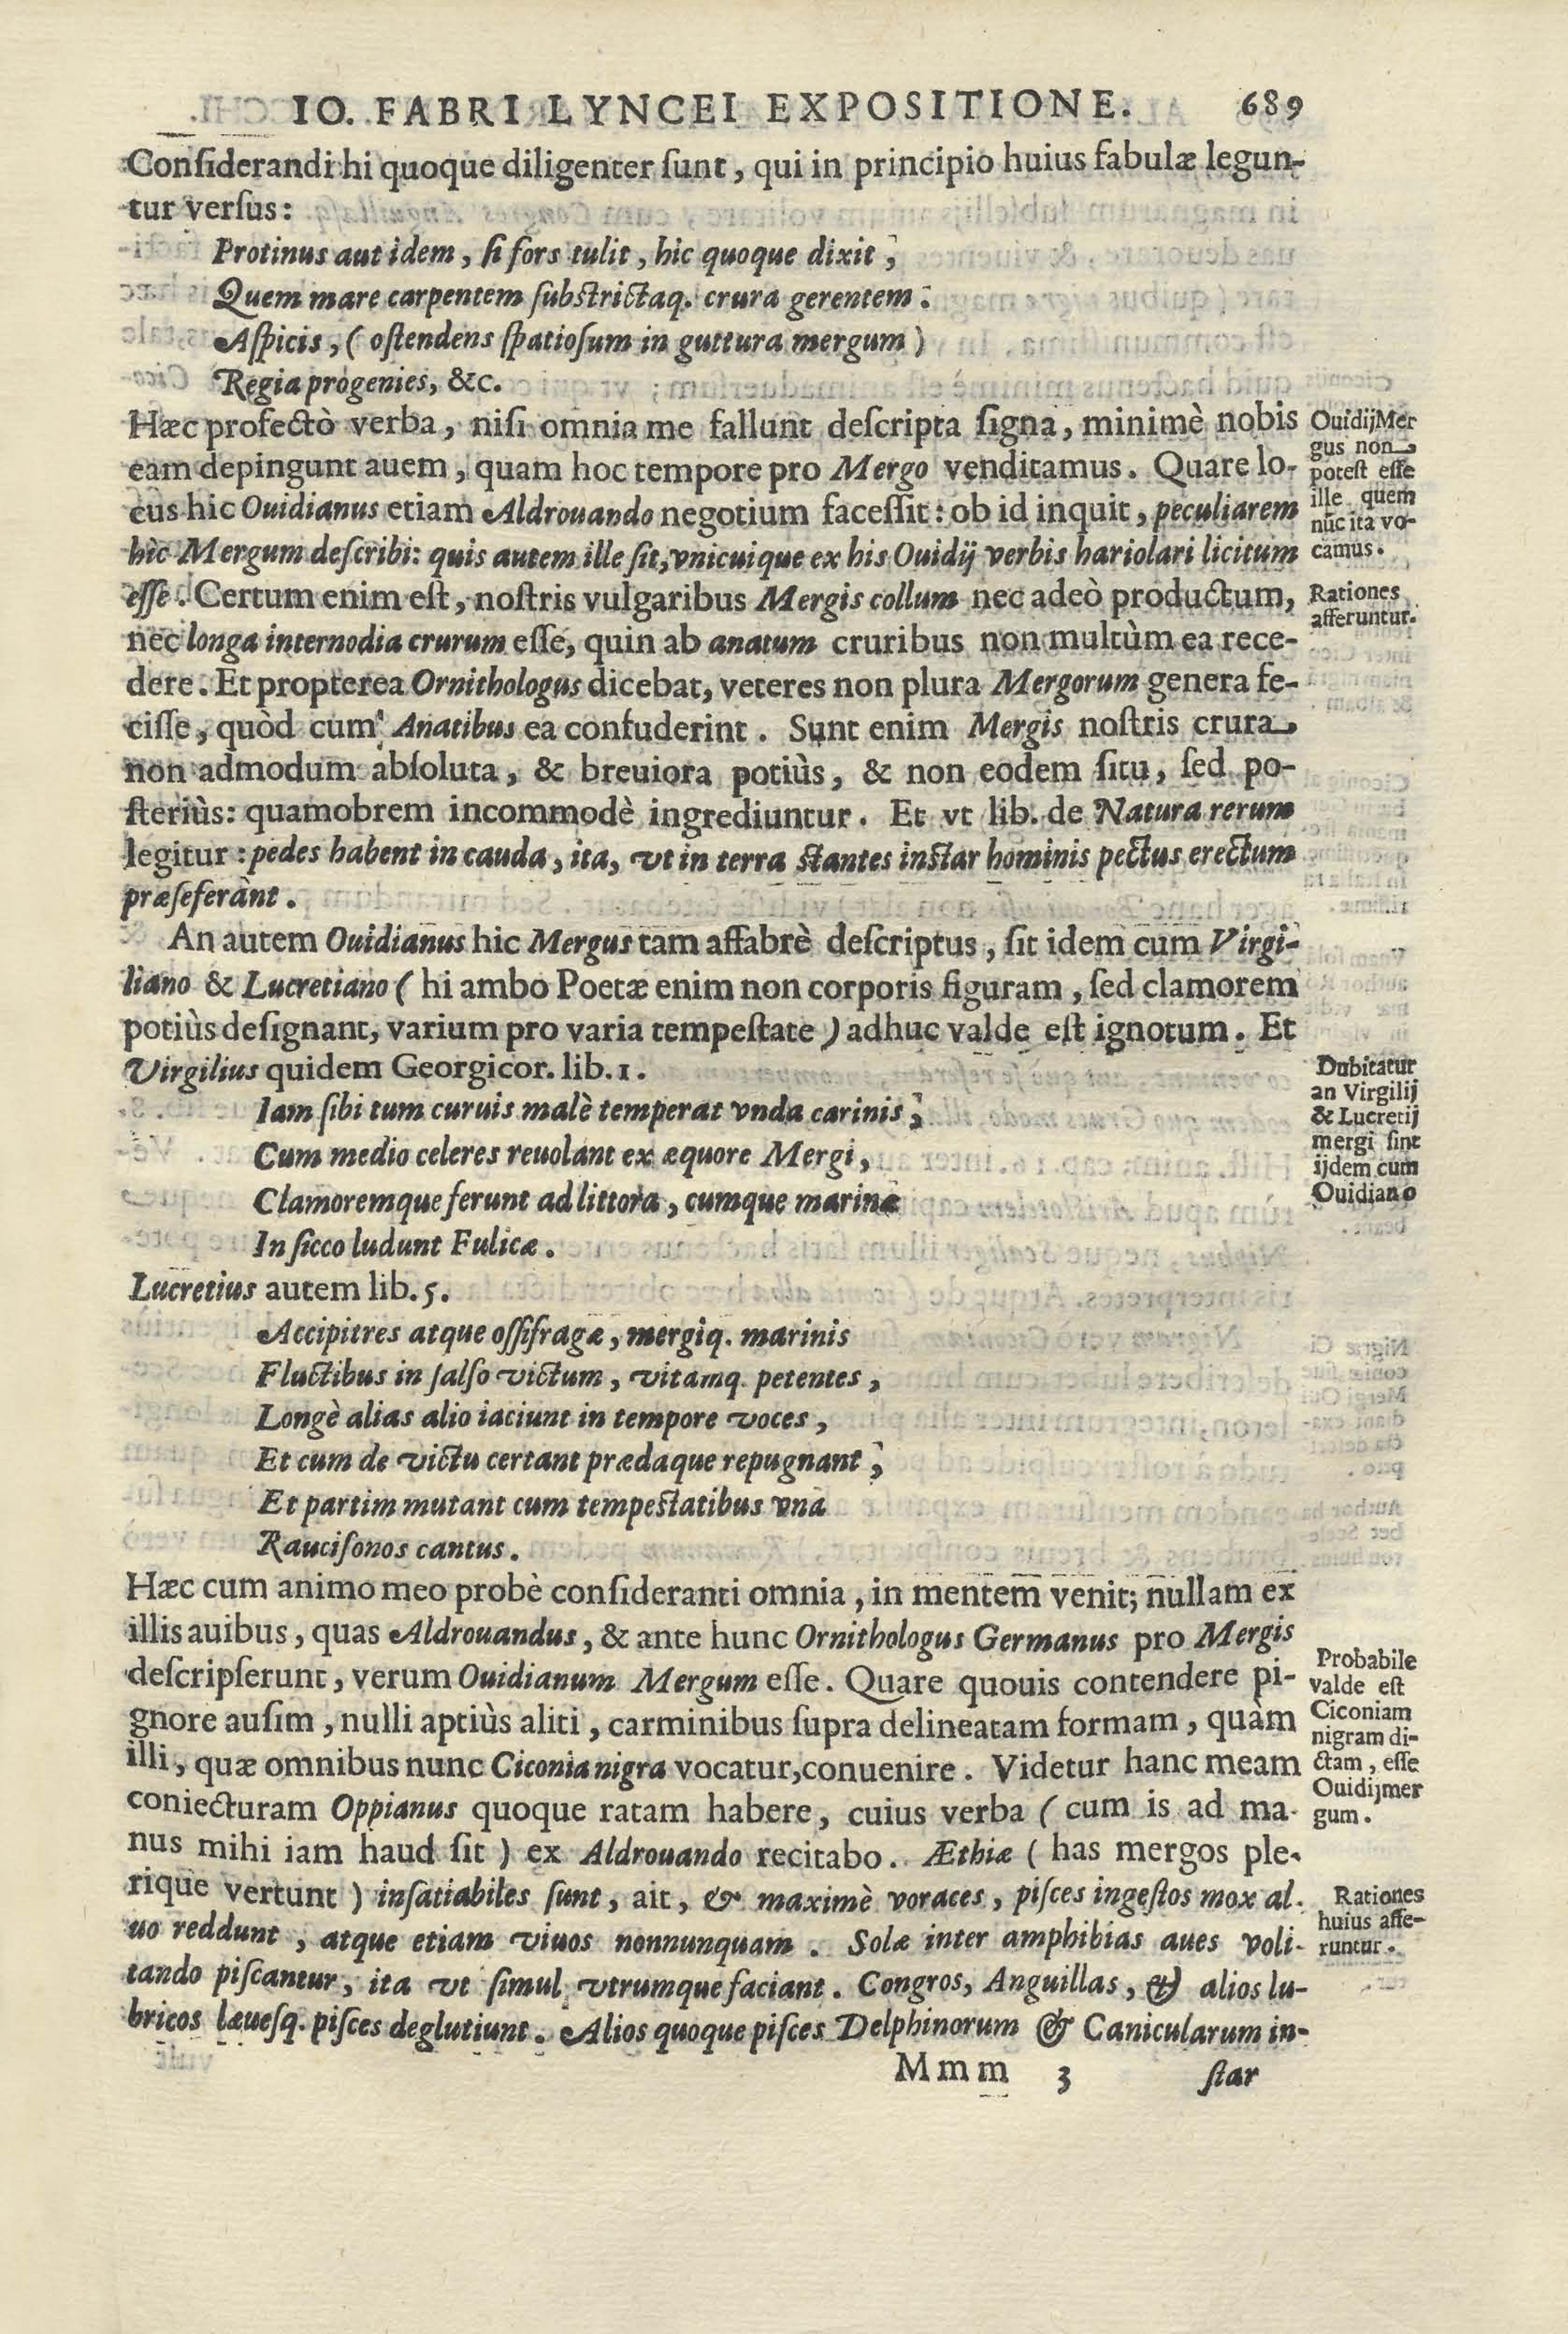 IO. FABRI LYNCEI EXPOSITIONE. 689
Conſiderandi hi quoque diligenter ſunt, qui in principio huius fabulæ legun-
tur verſus:
Protinus aut idem, ſi fors tulit, hic quoque dixit;
Quem mare carpentem ſubſtrictaq. crura gerentem:
Aſpicis, (oſtendens ſpatioſum in guttura mergum)
Regia progenies, &c.
Hæc profectò verba, niſi omnia me fallunt deſcripta ſigna, minimè nobis
eam depingunt auem, quam hoc tempore pro Mergo venditamus. Quare lo-
cus hic Ouidianus etiam Aldrouando negotium faceſſit: ob id inquit, peculiarem
hic Mergum deſcribi: quis autem ille ſit, vnicuique ex his Ouidij verbis hariolari licitum
eſſe. Certum enim eſt, noſtris vulgaribus Mergis collum nec adeò productum,
nec longa internodia crurum eſſe, quin ab anatum cruribus non multùm ea rece-
dere. Et propterea Ornithologus dicebat, veteres non plura Mergorum genera fe-
ciſſe, quòd cum Anatibus ea confuderint. Sunt enim Mergis noſtris crura
non admodum abſoluta, & breuiora potiùs, & non eodem ſitu, ſed po-
ſteriùs: quamobrem incommodè ingrediuntur. Et vt lib. de Natura rerum
legitur: pedes habent in cauda, ita, vt in terra ſtantes inſtar hominis pectus erectum
præſeferant.
An autem Ouidianus hic Mergus tam affabrè deſcriptus, ſit idem cum Virgi-
liano & Lucretiano (hi ambo Poetæ enim non corporis figuram, ſed clamorem
potiùs deſignant, varium pro varia tempeſtate) adhuc valde eſt ignotum. Et
Virgilius quidem Georgicor. lib. 1.
Iam ſibi tum curuis malè temperat vnda carinis;
Cum medio celeres reuolant ex æquore Mergi,
Clamoremque ferunt ad littora, cumque marinæ
In ſicco ludunt Fulicæ.
Lucretius autem lib. 5.
Accipitres atque oſſifragæ, mergiq. marinis
Fluctibus in ſalſo victum, vitamq. petentes,
Longè alias alio iaciunt in tempore voces,
Et cum de victu certant prædaque repugnant;
Et partim mutant cum tempeſtatibus vnà
Rauciſonos cantus.
Hæc cum animo meo probè conſideranti omnia, in mentem venit; nullam ex
illis auibus, quas Aldrouandus, & ante hunc Ornithologus Germanus pro Mergis
deſcripſerunt, verum Ouidianum Mergum eſſe. Quare quouis contendere pi-
gnore auſim, nulli aptiùs aliti, carminibus ſupra delineatam formam, quàm
illi, quæ omnibus nunc Ciconia nigra vocatur, conuenire. Videtur hanc meam
coniecturam Oppianus quoque ratam habere, cuius verba (cum is ad ma-
nus mihi iam haud ſit) ex Aldrouando recitabo. Æthiæ (has mergos ple-
rique vertunt) inſatiabiles ſunt, ait, & maximè voraces, piſces ingeſtos mox al-
uo reddunt, atque etiam viuos nonnunquam. Solæ inter amphibias aues voli-
tando piſcantur, ita vt ſimul vtrumque faciant. Congros, Anguillas, & alios lu-
bricos læueſq. piſces deglutiunt. Alios quoque piſces Delphinorum & Canicularum in-
Mmm 3 ſtar
Ouidij Mer
gus non
poteſt eſſe
ille quem
nūc ita vo-
camus.
Rationes
afferuntur.
Dubitatur
an Virgilij
& Lucretij
mergi ſint
ijdem cum
Ouidiano
Probabile
valde eſt
Ciconiam
nigram di-
ctam, eſſe
Ouidij mer
gum.
Rationes
huius affe-
runtur.